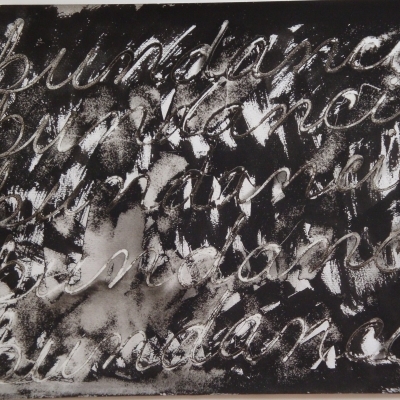 bundanc
bundanc
bundanc
bundanc
bundanc